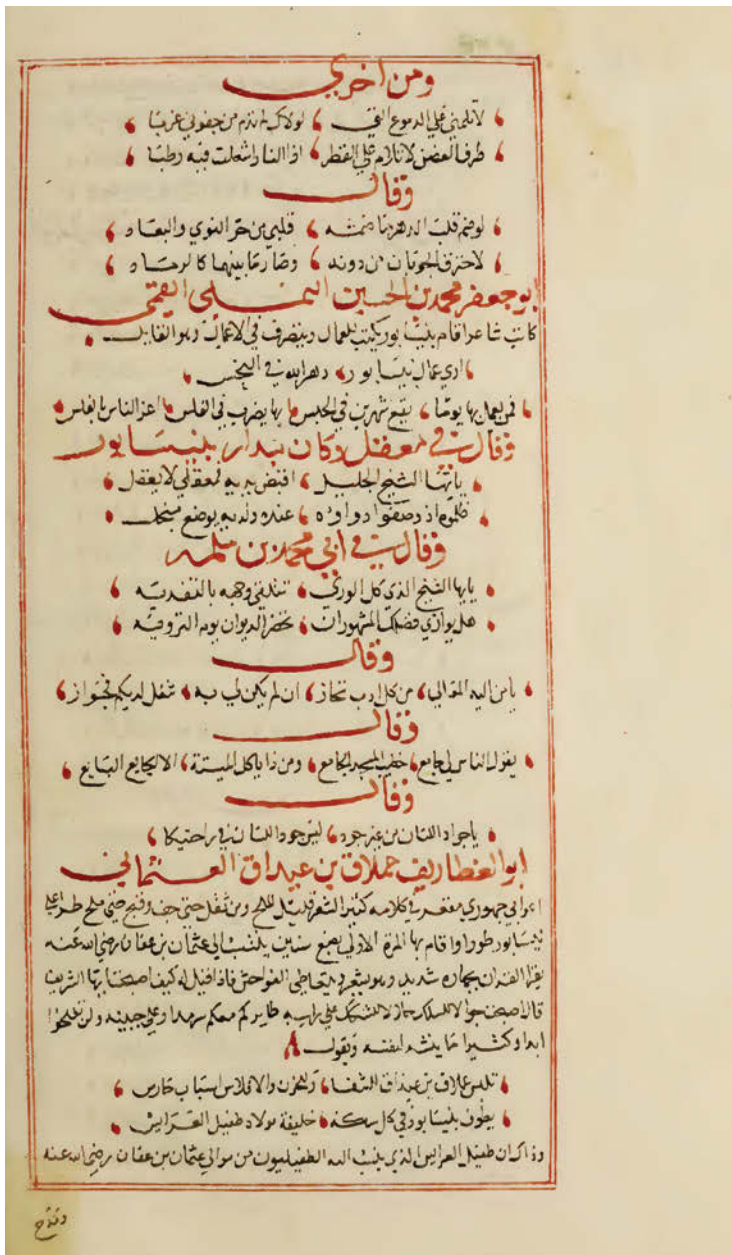 ومن اخري
لا تلمني علي الدموع التي لولاك لم تذم من جفوني غربا
طرف الغصن لا تلام علي القطر اذا النار اشعلت فيه رطبا
وقال
لو ضم قلب الدهر ما ضمنه قلبي من حر النوي والبعاد
لاحترق الجونان من دونه وصار ما بينهما كالرماد
ابو جعفر محمد بن الحسين القمي
كاتب شاعر اقام بنيسابور يكتب للعمال ويتصرف في الاعمال وهو القايل
اري عمال نيسابور دهر الله في النخس
فمن يعمل بها يوما يقع شهرين في الحبس بها يضرب في الفلس اعز الناس بالفلس
وقال في معقل وكان بندار بنيسابور
يايها الشيخ الجليل اقبض يديه لمعقلي لا يعقل
ظلموه اذ وصفوا دواوه عنده ولديه يوضع منجل
وقال في ابي محمد بن سلمه
يايها الشيخ الذي كل الوري تتلقي وجهه بالتفديه
هل يوازي فضلك المشهوران تحضر الديوان يوم الترويه
وقال
يا من اليه المعالي من كل ادب تحاز ان لم يكن لي به شغل لديكم فجواز
وقال
يقول الناس لي جامع خفيب المسجد الجامع ومن ذا ياكل الميتة الا الجايع البايع
وقال
يا جواد اللسان من غير جود ليس جود اللسان في راحتيكا
ابو الغطاريف حملاق بن غيداق العثماني
اعرابي جهوري مقعد في كلامه كثير الشعر قليل الملح ومن ثقل حتي خف وقبح حتي ملح طرا علي
نيسابور طورا واقام بها المرة الاولي بضع سنين ينتسب الي عثمان بن عفان رضي الله عنه
يقرا القران بجهاره شديد وهو يشعر ويتعاطي الفواحش فاذا قيل له كيف اصبحت ايها الشريف
قال اصبحت جوالا للسكك حمالا للشكك علي راسه طايركم معكم سرمدا وعلي جبينه ولن تفلحوا
ابدا وكثيرا ما ينشد لنفسه ويقول
تلبس حملاق بن غيداق للشقا وللحزن والافلاس اسباب حارس
يطوف بنيسابور في كل سكة خليفة مولاه طفيل العرايس
وذاك ان طفيل العرايس الذي ينسب اليه الطفيليون من موالي عثمان بن عفان رضي الله عنه